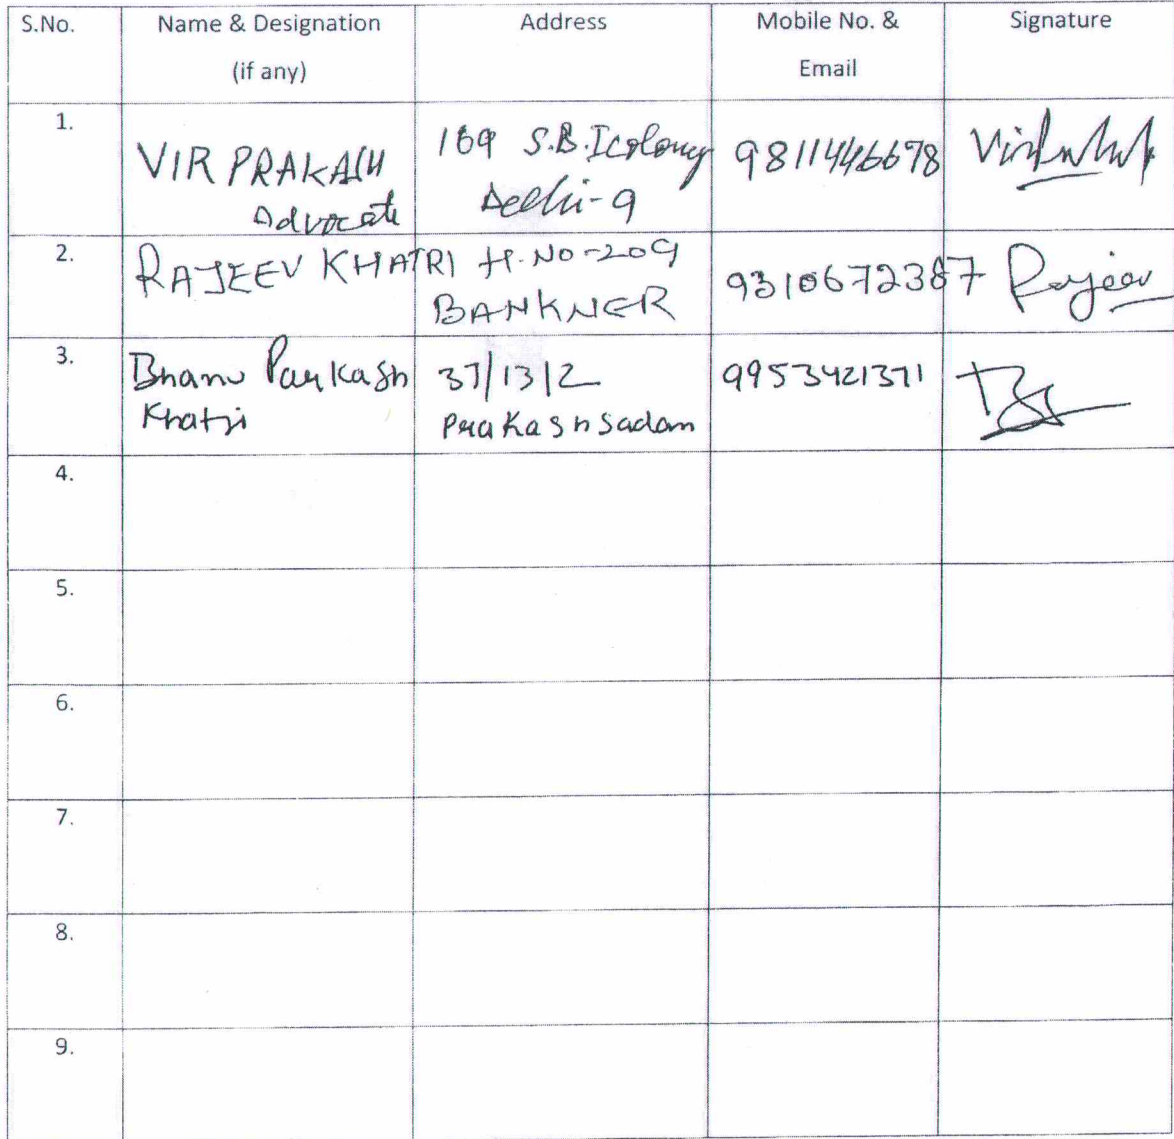 S.No. Name & Designation (if any) Address Mobile No. & Email Signature
1. VIR PRAKASH Advocate 169 S.B.I colony Delhi-9 9811446678
2. RAJEEV KHATRI H.NO-209 BANKNER 9310672387 Rajeev
3. Bhanu Parkash Khatri 37/13/2 Prakash Sadan 9953421371
4.
5.
6.
7.
8.
9.